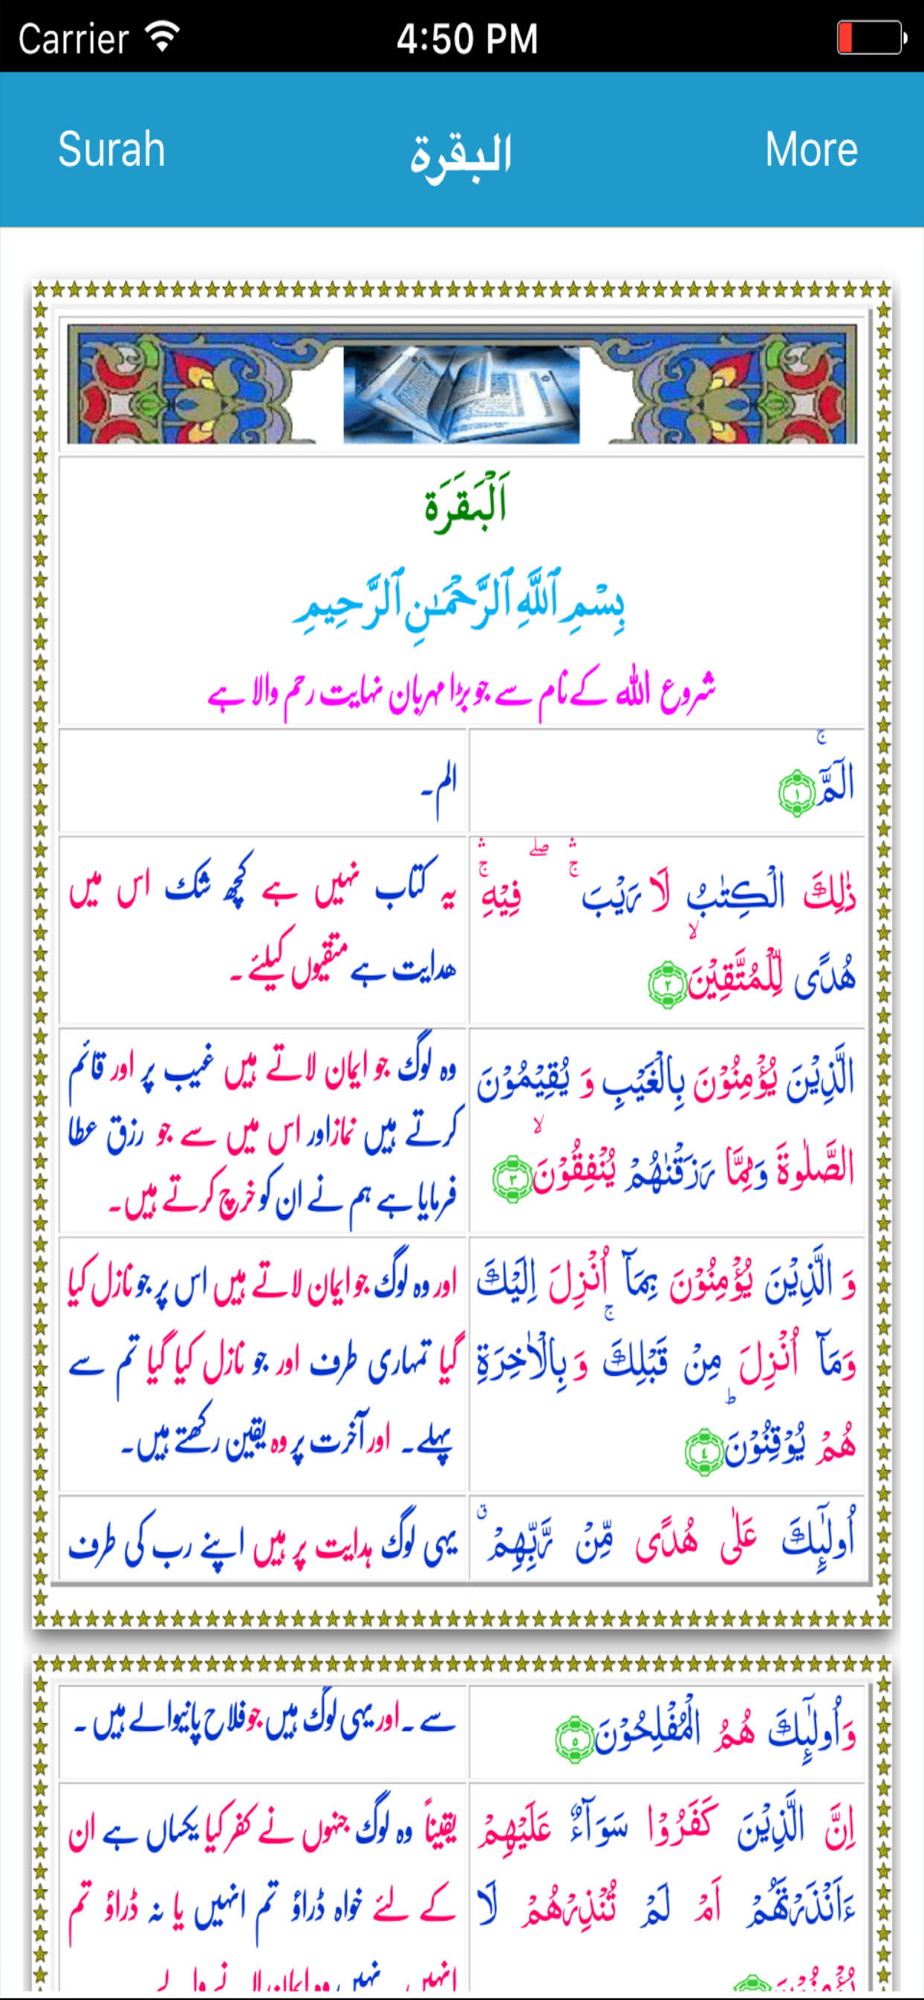 Carrier 4:50 PM
Surah البقرة More
اَلْبَقَرَة
بِسْمِ ٱللَّهِ ٱلرَّحْمَـٰنِ ٱلرَّحِيمِ
شروع اللہ کے نام سے جو بڑا مہربان نہایت رحم والا ہے
الٓمّٓ ۚ ١
الم۔
ذٰلِكَ الْكِتٰبُ لَا رَيْبَ ۛۚ ۖ فِيْهِ ۛۚ
هُدًى لِّلْمُتَّقِيْنَ ۙ ٢
یہ کتاب نہیں ہے کچھ شک اس میں
ھدایت ہے متقیوں کیلئے۔
الَّذِيْنَ يُؤْمِنُوْنَ بِالْغَيْبِ وَ يُقِيْمُوْنَ
الصَّلٰوةَ وَمِمَّا رَزَقْنٰهُمْ يُنْفِقُوْنَ ۙ ٣
وہ لوگ جو ایمان لاتے ہیں غیب پر اور قائم
کرتے ہیں نماز اور اس میں سے جو رزق عطا
فرمایا ہے ہم نے ان کو خرچ کرتے ہیں۔
وَ الَّذِيْنَ يُؤْمِنُوْنَ بِمَآ اُنْزِلَ اِلَيْكَ
وَمَآ اُنْزِلَ مِنْ قَبْلِكَ ۚ وَ بِالْاٰخِرَةِ
هُمْ يُوْقِنُوْنَ ؕ ٤
اور وہ لوگ جو ایمان لاتے ہیں اس پر جو نازل کیا
گیا تمہاری طرف اور جو نازل کیا گیا تم سے
پہلے۔ اور آخرت پر وہ یقین رکھتے ہیں۔
اُولٰٓئِكَ عَلٰى هُدًى مِّنْ رَّبِّهِمْ ۗ
یہی لوگ ہدایت پر ہیں اپنے رب کی طرف
وَاُولٰٓئِكَ هُمُ الْمُفْلِحُوْنَ ٥
سے۔ اور یہی لوگ ہیں جو فلاح پانیوالے ہیں۔
اِنَّ الَّذِيْنَ كَفَرُوْا سَوَآءٌ عَلَيْهِمْ
ءَاَنْذَرْتَهُمْ اَمْ لَمْ تُنْذِرْهُمْ لَا
یقیناً وہ لوگ جنہوں نے کفر کیا یکساں ہے ان
کے لئے خواہ ڈراؤ تم انہیں یا نہ ڈراؤ تم